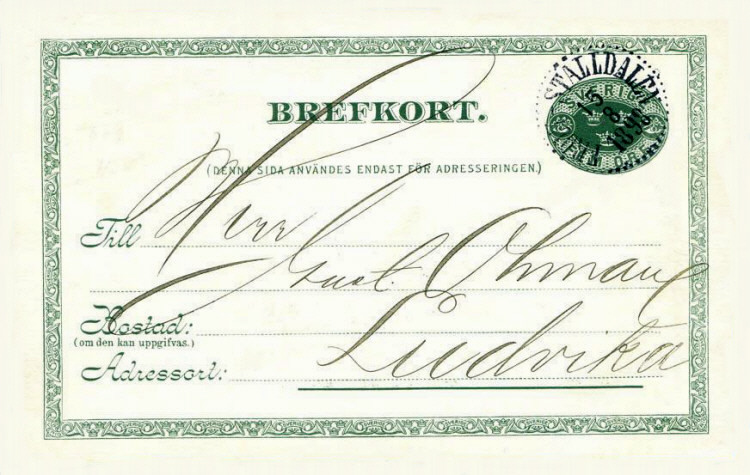 BREFKORT.
STÄLLDALEN
15
8
1898
SVERIGE
(DENNA SIDA ANVÄNDES ENDAST FÖR ADRESSERINGEN.)
Till Herr
Gust. Öhman
Bostad:
(om den kan uppgifvas.)
Adressort: Ludvika